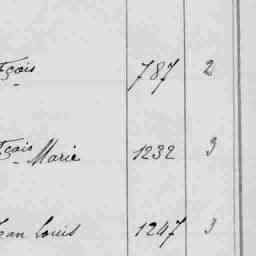 çois 787 2
çois Marie 1232 3
Jean Louis 1247 3